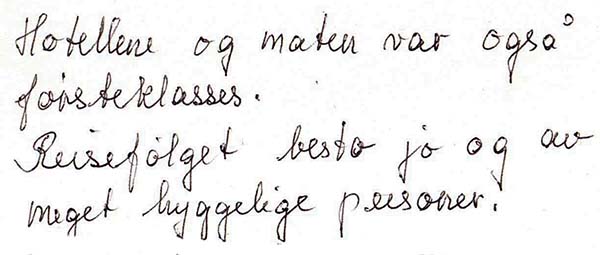 Hotellene og maten var også
førsteklasses.
Reisefølget besto jo og av
meget hyggelige personer.